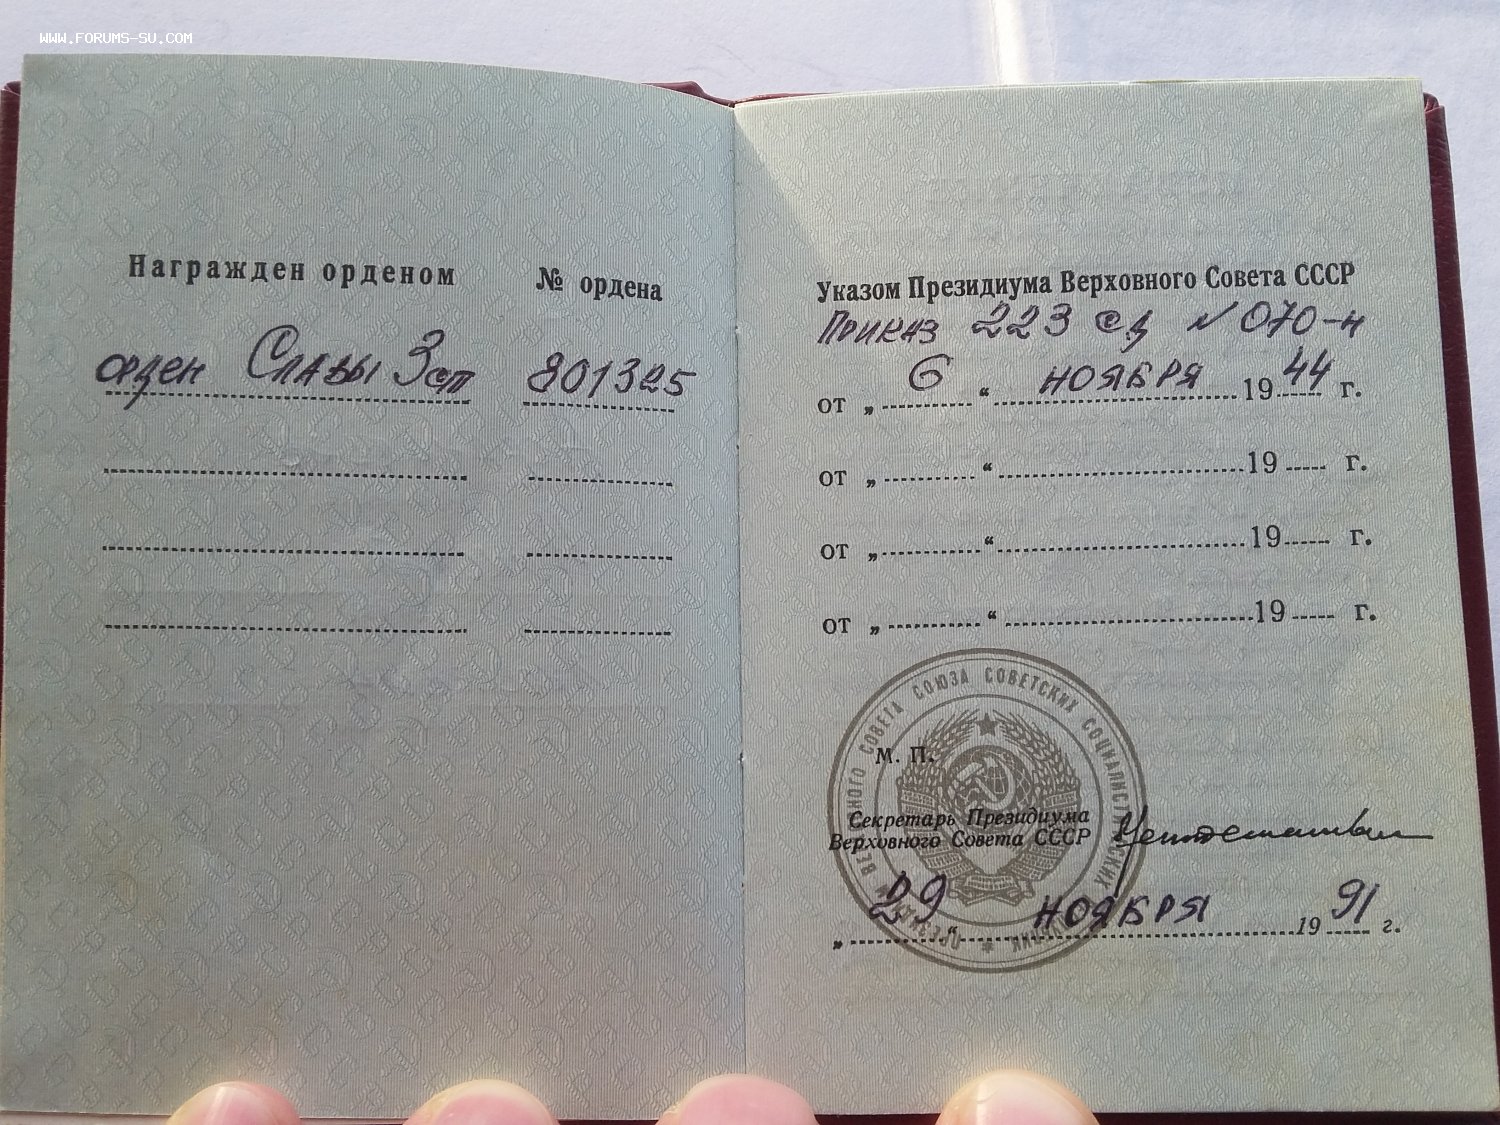 WWW.FORUMS-SU.COM
Награжден орденом № ордена
орден Славы 3 ст 801325
Указом Президиума Верховного Совета СССР
Приказ 223 сд № 070-н
от „ 6 “ ноября 1944 г.
от „ “ 19 г.
от „ “ 19 г.
от „ “ 19 г.
ПРЕЗИДИУМ ВЕРХОВНОГО СОВЕТА СОЮЗА СОВЕТСКИХ СОЦИАЛИСТИЧЕСКИХ РЕСПУБЛИК
М. П.
Секретарь Президиума
Верховного Совета СССР
„ 29 “ ноября 1991 г.